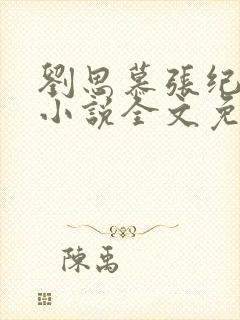 劉思慕張纪
小說全文免
陳禹